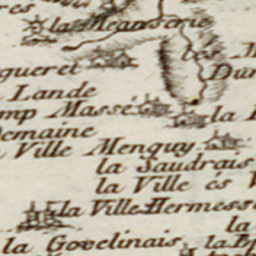 res
la Meanserie
les M
gueret
Dur
Lande
mp Massé
la
emaine
Ville Menguy
la Saudrais
la Ville és V
la Ville Hermess
la
la Govelinais
la